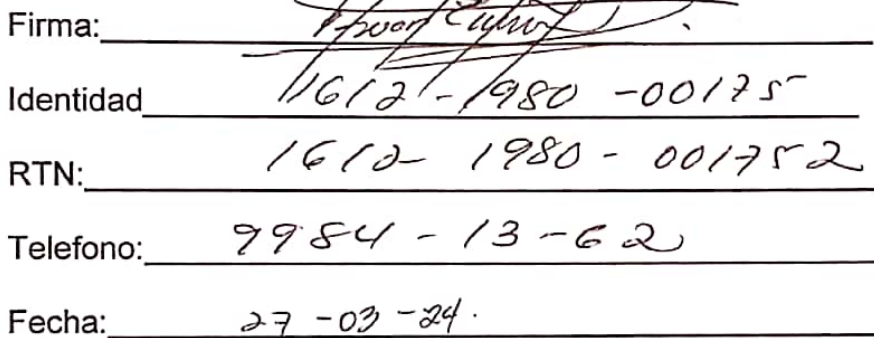 Firma:
Identidad 1612-1980-00175
RTN: 1612-1980-001752
Telefono: 9984-13-62
Fecha: 27-03-24.